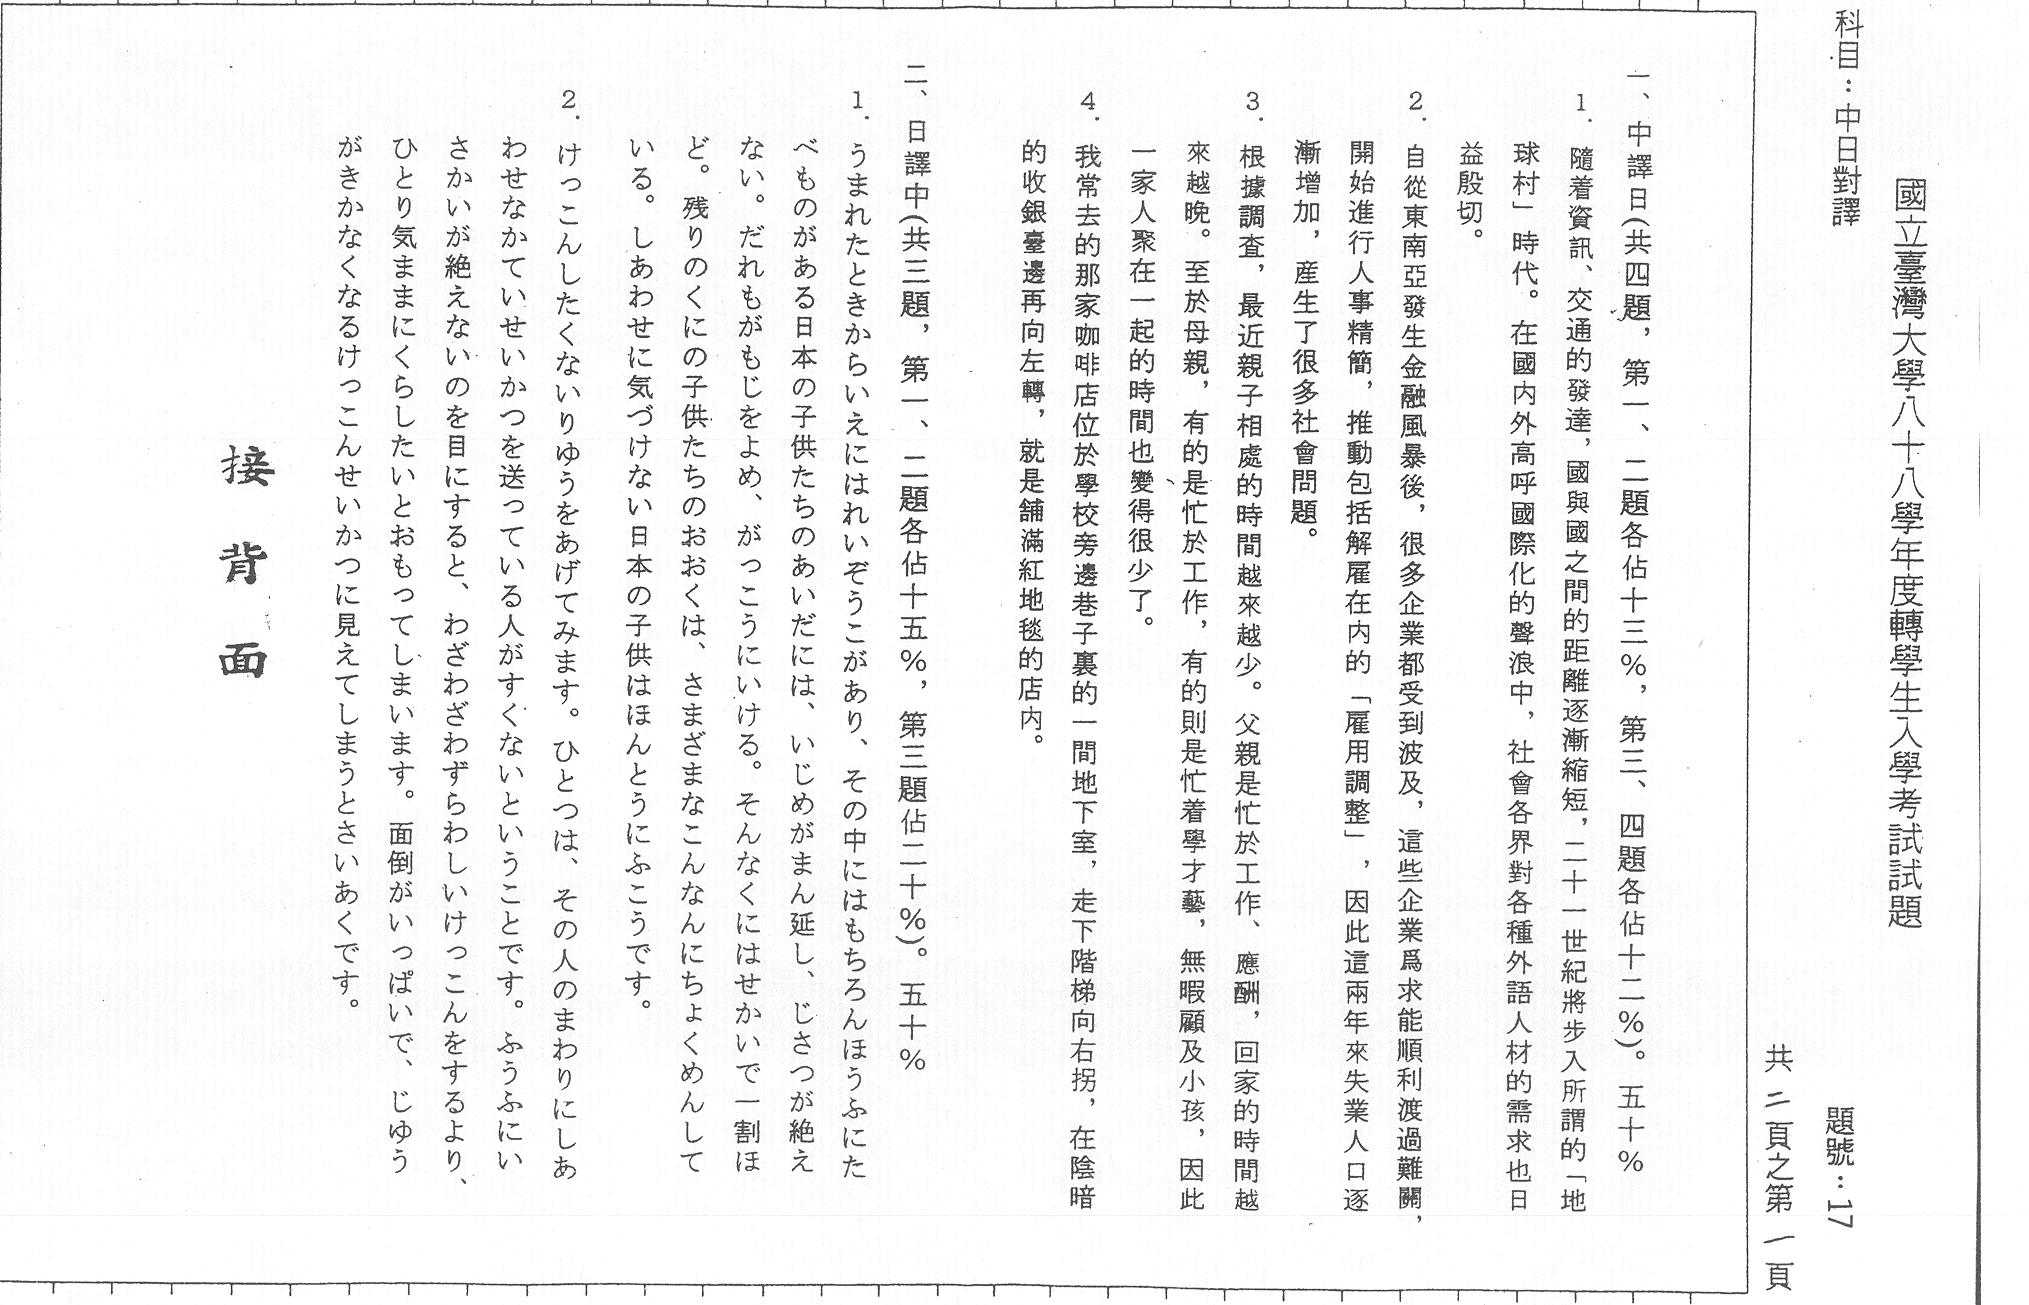 國立臺灣大學八十八學年度轉學生入學考試試題
科目：中日對譯
題號：17
共二頁之第一頁
一、中譯日(共四題，第一、二題各佔十三%，第三、四題各佔十二%)。五十%
1. 隨着資訊、交通的發達，國與國之間的距離逐漸縮短，二十一世紀將步入所謂的「地
球村」時代。在國內外高呼國際化的聲浪中，社會各界對各種外語人材的需求也日
益殷切。
2. 自從東南亞發生金融風暴後，很多企業都受到波及，這些企業爲求能順利渡過難關，
開始進行人事精簡，推動包括解雇在内的「雇用調整」，因此這兩年來失業人口逐
漸增加，産生了很多社會問題。
3. 根據調査，最近親子相處的時間越來越少。父親是忙於工作、應酬，回家的時間越
來越晚。至於母親，有的是忙於工作，有的則是忙着學才藝，無暇顧及小孩，因此
一家人聚在一起的時間也變得很少了。
4. 我常去的那家咖啡店位於學校旁邊巷子裏的一間地下室，走下階梯向右拐，在陰暗
的收銀臺邊再向左轉，就是舖滿紅地毯的店内。
二、日譯中(共三題，第一、二題各佔十五%，第三題佔二十%)。五十%
1. うまれたときからいえにはれいぞうこがあり、その中にはもちろんほうふにた
べものがある日本の子供たちのあいだには、いじめがまん延し、じさつが絶え
ない。だれもがもじをよめ、がっこうにいける。そんなくにはせかいで一割ほ
ど。残りのくにの子供たちのおおくは、さまざまなこんなんにちょくめんして
いる。しあわせに気づけない日本の子供はほんとうにふこうです。
2. けっこんしたくないりゆうをあげてみます。ひとつは、その人のまわりにしあ
わせなかていせいかつを送っている人がすくないということです。ふうふにい
さかいが絶えないのを目にすると、わざわざわずらわしいけっこんをするより、
ひとり気ままにくらしたいとおもってしまいます。面倒がいっぱいで、じゆう
がきかなくなるけっこんせいかつに見えてしまうとさいあくです。
接背面